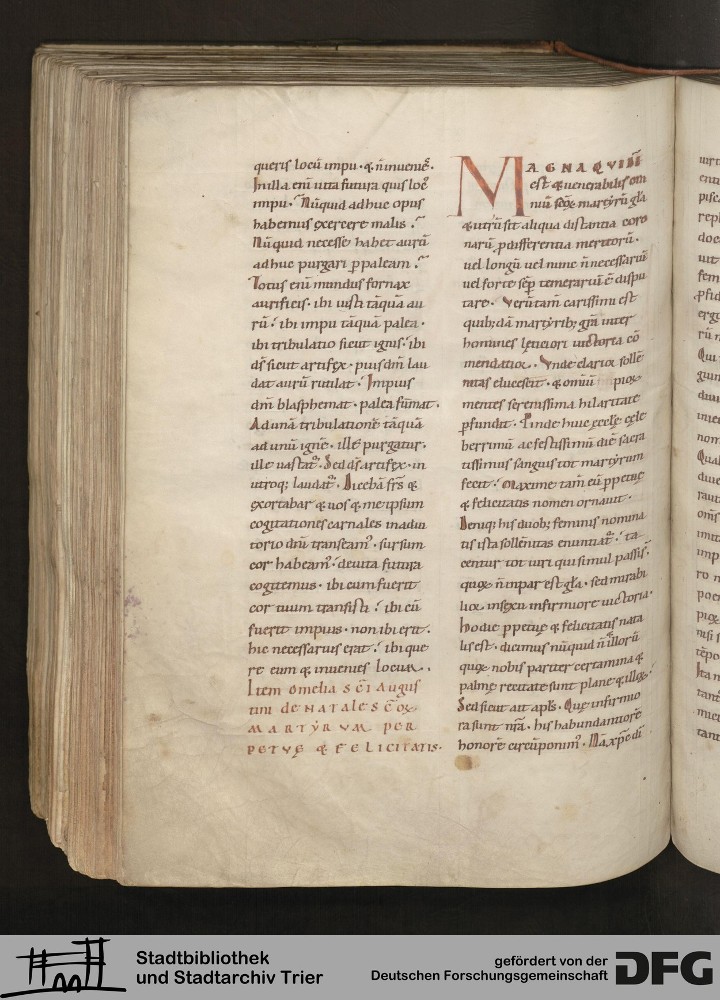 queris locū impii · & n̄ inuenies̄.
In illa enī uita futura quis locꝰ
impii · Nūquid adhuc opus
habemus exercere malis ?
Nūquid necesse habet aurū
adhuc purgari p paleam ?
Totus enī mundus fornax
aurificis · ibi iusti tāquā au
rū · ibi impii tāquā palea ·
ibi tribulatio sicut ignis · ibi
ds̄ sicut artifex · pius dm̄ lau
dat aurū rutilat · Impius
dm̄ blasphemat · palea fūmat ·
Ad unā tribulationē tāquā
ad unū ignē · ille purgatur ·
ille uastat᷑ · Sed ds̄ artifex · in
utroq; laudat᷑ · Dicebā frs̄ &
exortabar & uos & me ipsum
cogitationes carnales in adiu
torio dn̄i transeamꝰ · sursum
cor habeamꝰ · de uita futura
cogitemus · ibi cum fuerit
cor tuum transisti · ibi cū
fuerit impius · non ibi erit ·
hic necessarius erat · ibi que
re eum & inuenies locum ·
Item omelia SCI Augus
tini de NATALE SCOꝝ
MARTYRUM PER
PETUĘ & FELICITATIS ·
MAGNA QVIDĒ
est & uenerabilis om
niū sc̄oꝝ martyrū gl̄a
& utrū sit aliqua distantia coro
narū p differentia meritorū ·
uel longū uel nunc n̄ necessariū
uel forte semp temerariū ē dispu
tare · Verūtam̄ carissimi est
quib;dā martyrib; gr̄a inter
homines lętiori uictoria cō
mendatioꝝ · Vnde clarioꝝ sollē
nitas elucescit · & omniū pioꝝ
mentes serenissima hilaritate
pfundit · Proinde huic ęcclę cęle
berrimū ac festissimū diē sacra
tissimus sanguis tot martyrum
fecit · Maxime tam̄ eū ppetuę
& felicitatis nomen ornauit ·
Deniq; his duob; feminis nomina
tis ista sollēnitas enuntiat᷑ · ta
centur tot uiri qui simul passi s̄ ·
quoꝝ n̄ inpar est gl̄a · sed mirabi
lioꝝ in sexu infirmiore uictoria ·
Hodie ppetuę & felicitatis nata
lis est · dicimus nūquid n̄ & illorū
quoꝝ nobis pariter certamina &
palmę recitate sunt plane & illoꝝ ·
Sed sicut ait apl̄s · Que infirmio
ra sunt nr̄a · his habundantiorē
honorē circūponimꝰ · Nā xp̄e di
Stadtbibliothek
und Stadtarchiv Trier
gefördert von der
Deutschen Forschungsgemeinschaft
DFG